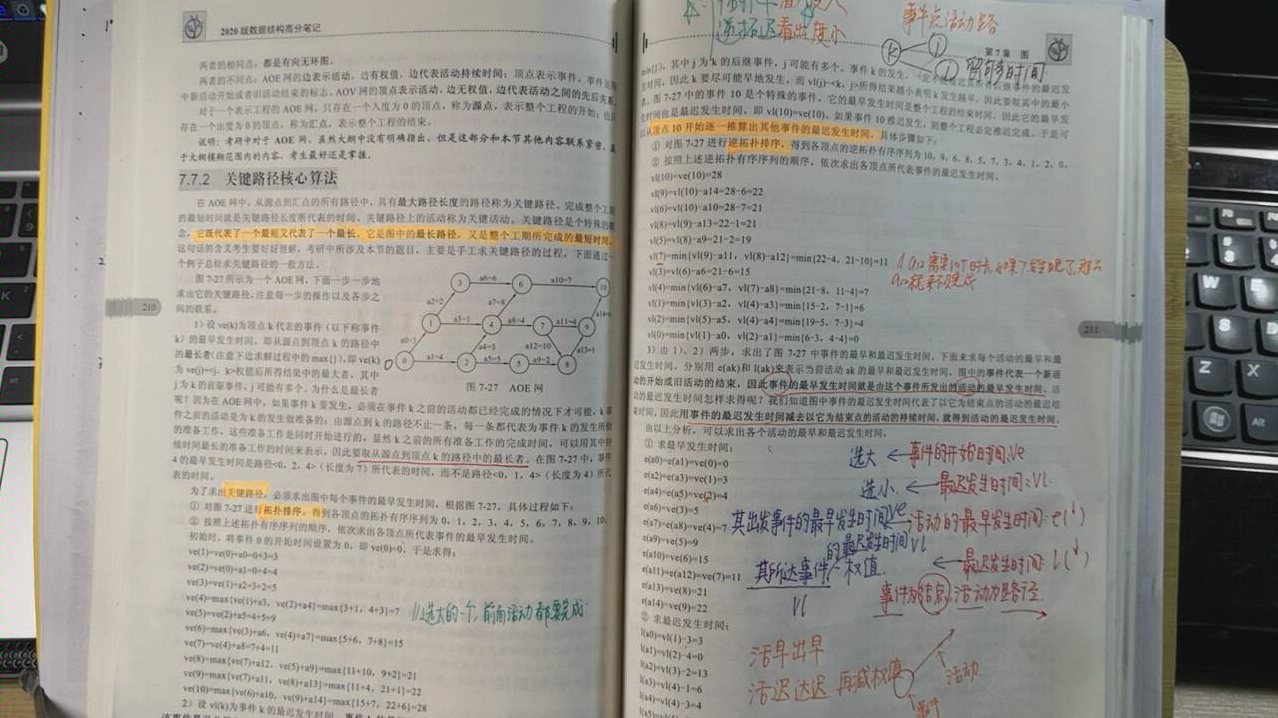 2020 版数据结构高分笔记
两者的相同点：都是有向无环图。
两者的不同点：AOE 网的边表示活动，边有权值，边代表活动持续时间；顶点表示事件，事件是图
中新活动开始或者旧活动结束的标志。AOV 网的顶点表示活动，边无权值，边代表活动之间的先后关系。
对于一个表示工程的 AOE 网，只存在一个入度为 0 的顶点，称为源点，表示整个工程的开始；也只
存在一个出度为 0 的顶点，称为汇点，表示整个工程的结束。
说明：考研中对于 AOE 网，虽然大纲中没有明确指出，但是这部分和本节其他内容联系紧密，属
于大纲模糊范围内的内容，考生最好还是掌握。
7.7.2 关键路径核心算法
在 AOE 网中，从源点到汇点的所有路径中，具有最大路径长度的路径称为关键路径。完成整个工期
的最短时间就是关键路径长度所代表的时间。关键路径上的活动称为关键活动。关键路径是个特殊的概
念，它既代表了一个最短又代表了一个最长，它是图中的最长路径，又是整个工期所完成的最短时间。
这句话的含义考生要好好理解。考研中所涉及本节的题目，主要是手工求关键路径的过程，下面通过一
个例子总结求关键路径的一般方法。
图 7-27 所示为一个 AOE 网，下面一步一步地
求出它的关键路径，注意每一步的操作以及各步之
间的联系。
210
1）设 ve(k)为顶点 k 代表的事件（以下称事件
k）的最早发生时间，即从源点到顶点 k 的路径中
的最长者(注意下边求解过程中的 max{})，即 ve(k)
为 ve(j)+<j，k>权值后所得结果中的最大者，其中
j 为 k 的前驱事件，j 可能有多个。为什么是最长者
a6=6
a10=7
a2=2
a7=8
a14=6
a3=1
a8=4
a11=4
a0=3
a4=3
a12=10
a13=1
a1=4
a5=5
a9=2
图 7-27 AOE 网
呢？因为在 AOE 网中，如果事件 k 要发生，必须在事件 k 之前的活动都已经完成的情况下才可能，k 事
件之前的活动是为 k 的发生做准备的；由源点到 k 的路径不止一条，每一条都代表为事件 k 的发生所做
的准备工作，这些准备工作是同时开始进行的，显然 k 之前的所有准备工作的完成时间，可以用其中持
续时间最长的准备工作的时间来表示，因此要取从源点到顶点 k 的路径中的最长者。在图 7-27 中，事件
4 的最早发生时间是路径<0，2，4>（长度为 7）所代表的时间，而不是路径<0，1，4>（长度为 4）所代
表的时间。
为了求出关键路径，必须求出图中每个事件的最早发生时间，根据图 7-27，具体过程如下：
① 对图 7-27 进行拓扑排序，得到各顶点的拓扑有序序列为 0，1，2，3，4，5，6，7，8，9，10。
② 按照上述拓扑有序序列的顺序，依次求出各顶点所代表事件的最早发生时间。
初始时，将事件 0 的开始时间设置为 0，即 ve(0)=0，于是求得：
ve(1)=ve(0)+a0=0+3=3
ve(2)=ve(0)+a1=0+4=4
ve(3)=ve(1)+a2=3+2=5
ve(4)=max{ve(1)+a3，ve(2)+a4}=max{3+1，4+3}=7
//选大的一个，前面活动都要完成
ve(5)=ve(2)+a5=4+5=9
ve(6)=max{ve(3)+a6，ve(4)+a7}=max{5+6，7+8}=15
ve(7)=ve(4)+a8=7+4=11
ve(8)=max{ve(7)+a12，ve(5)+a9}=max{11+10，9+2}=21
ve(9)=max{ve(7)+a11，ve(8)+a13}=max{11+4，21+1}=22
ve(10)=max{ve(6)+a10，ve(9)+a14}=max{15+7，22+6}=28
2）设 vl(k)为事件 k 的最迟发生时间
逆拓迟看出度小
事件点活动路
留匀多时间
第 7 章 图
min{}，其中 j 为 k 的后继事件，j 可能有多个。事件 k 的发生
生时间，因此 k 要尽可能早地发生，而 vl(j)-<k，j>所得结果越小表明 k 发生越早，因此要取其中的最小
者。图 7-27 中的事件 10 是个特殊的事件，它的最早发生时间是整个工程的结束时间，因此它的最早发
生时间也是最迟发生时间，即 vl(10)=ve(10)。如果事件 10 推迟发生，则整个工程必定推迟完成。于是可
以从顶点 10 开始逐一推算出其他事件的最迟发生时间，具体步骤如下：
① 对图 7-27 进行逆拓扑排序，得到各顶点的逆拓扑有序序列为 10，9，6，8，5，7，3，4，1，2，0。
② 按照上述逆拓扑有序序列的顺序，依次求出各顶点所代表事件的最迟发生时间。
vl(10)=ve(10)=28
vl(9)=vl(10)-a14=28-6=22
vl(6)=vl(10)-a10=28-7=21
vl(8)=vl(9)-a13=22-1=21
vl(5)=vl(8)-a9=21-2=19
vl(7)=min{vl(9)-a11，vl(8)-a12}=min{22-4，21-10}=11
vl(3)=vl(6)-a6=21-6=15
vl(4)=min{vl(6)-a7，vl(7)-a8}=min{21-8，11-4}=7
vl(1)=min{vl(3)-a2，vl(4)-a3}=min{15-2，7-1}=6
vl(2)=min{vl(5)-a5，vl(4)-a4}=min{19-5，7-3}=4
vl(0)=min{vl(1)-a0，vl(2)-a1}=min{6-3，4-4}=0
211
3）由 1）、2）两步，求出了图 7-27 中事件的最早和最迟发生时间，下面来求每个活动的最早和最
迟发生时间，分别用 e(ak)和 l(ak)来表示当前活动 ak 的最早和最迟发生时间。图中的事件代表一个新活
动的开始或旧活动的结束，因此事件的最早发生时间就是由这个事件所发出的活动的最早发生时间。活
动的最迟发生时间怎样求得呢？我们知道图中事件的最迟发生时间代表了以它为结束点的活动的最迟结
束时间，因此用事件的最迟发生时间减去以它为结束点的活动的持续时间，就得到活动的最迟发生时间。
由以上分析，可以求出各个活动的最早和最迟发生时间。
① 求最早发生时间：
e(a0)=e(a1)=ve(0)=0
e(a2)=e(a3)=ve(1)=3
e(a4)=e(a5)=ve(2)=4
e(a6)=ve(3)=5
e(a7)=e(a8)=ve(4)=7
e(a9)=ve(5)=9
e(a10)=ve(6)=15
e(a11)=e(a12)=ve(7)=11
e(a13)=ve(8)=21
e(a14)=ve(9)=22
② 求最迟发生时间：
l(a0)=vl(1)-3=3
l(a1)=vl(2)-4=0
l(a2)=vl(3)-2=13
l(a3)=vl(4)-1=6
l(a4)=vl(4)-3=4
选大 ← 事件的开始时间:Ve
选小 ← 最迟发生时间:VL
其出发事件的最早发生时间ve ← 活动的最早发生时间:e( )
的最迟发生时间VL
其所达事件-权值 ← 最迟发生时间 l( )
Vl
事件为结点 活动为路径
活早出早
活迟达迟 再减权嘎
活动
事件